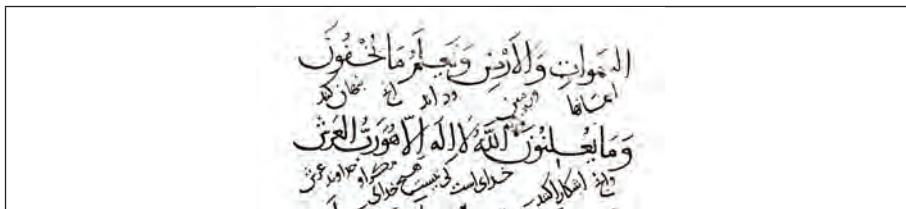 السموات والارض ويعلم ما تخفون
آسمانها و زمین و داند آنچ پنهان کنید
وما يعلنون الله لا اله الا هو رب العرش
وانچ اشکارا کنند خدای است کی نیست هیچ خدای مگر او خداوند عرش